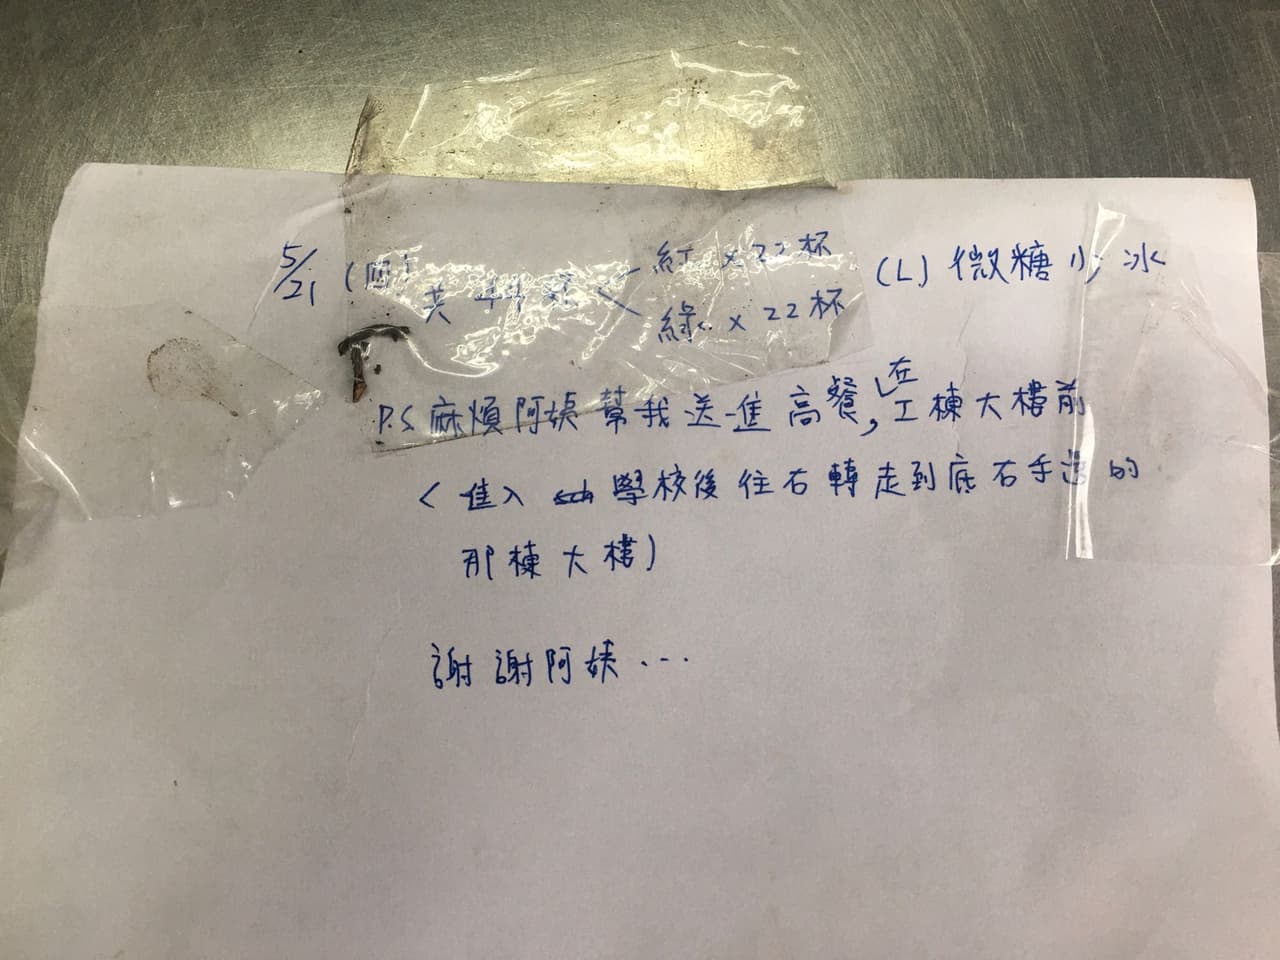 5/21 (四) 共 44 杯 < 紅 x 22 杯 (L) 微糖 少 冰
綠 x 22 杯
P.S 麻煩阿姨幫我送進高餐,在工棟大樓前
(進入學校後往右轉走到底右手邊的
那棟大樓)
謝謝阿姨...